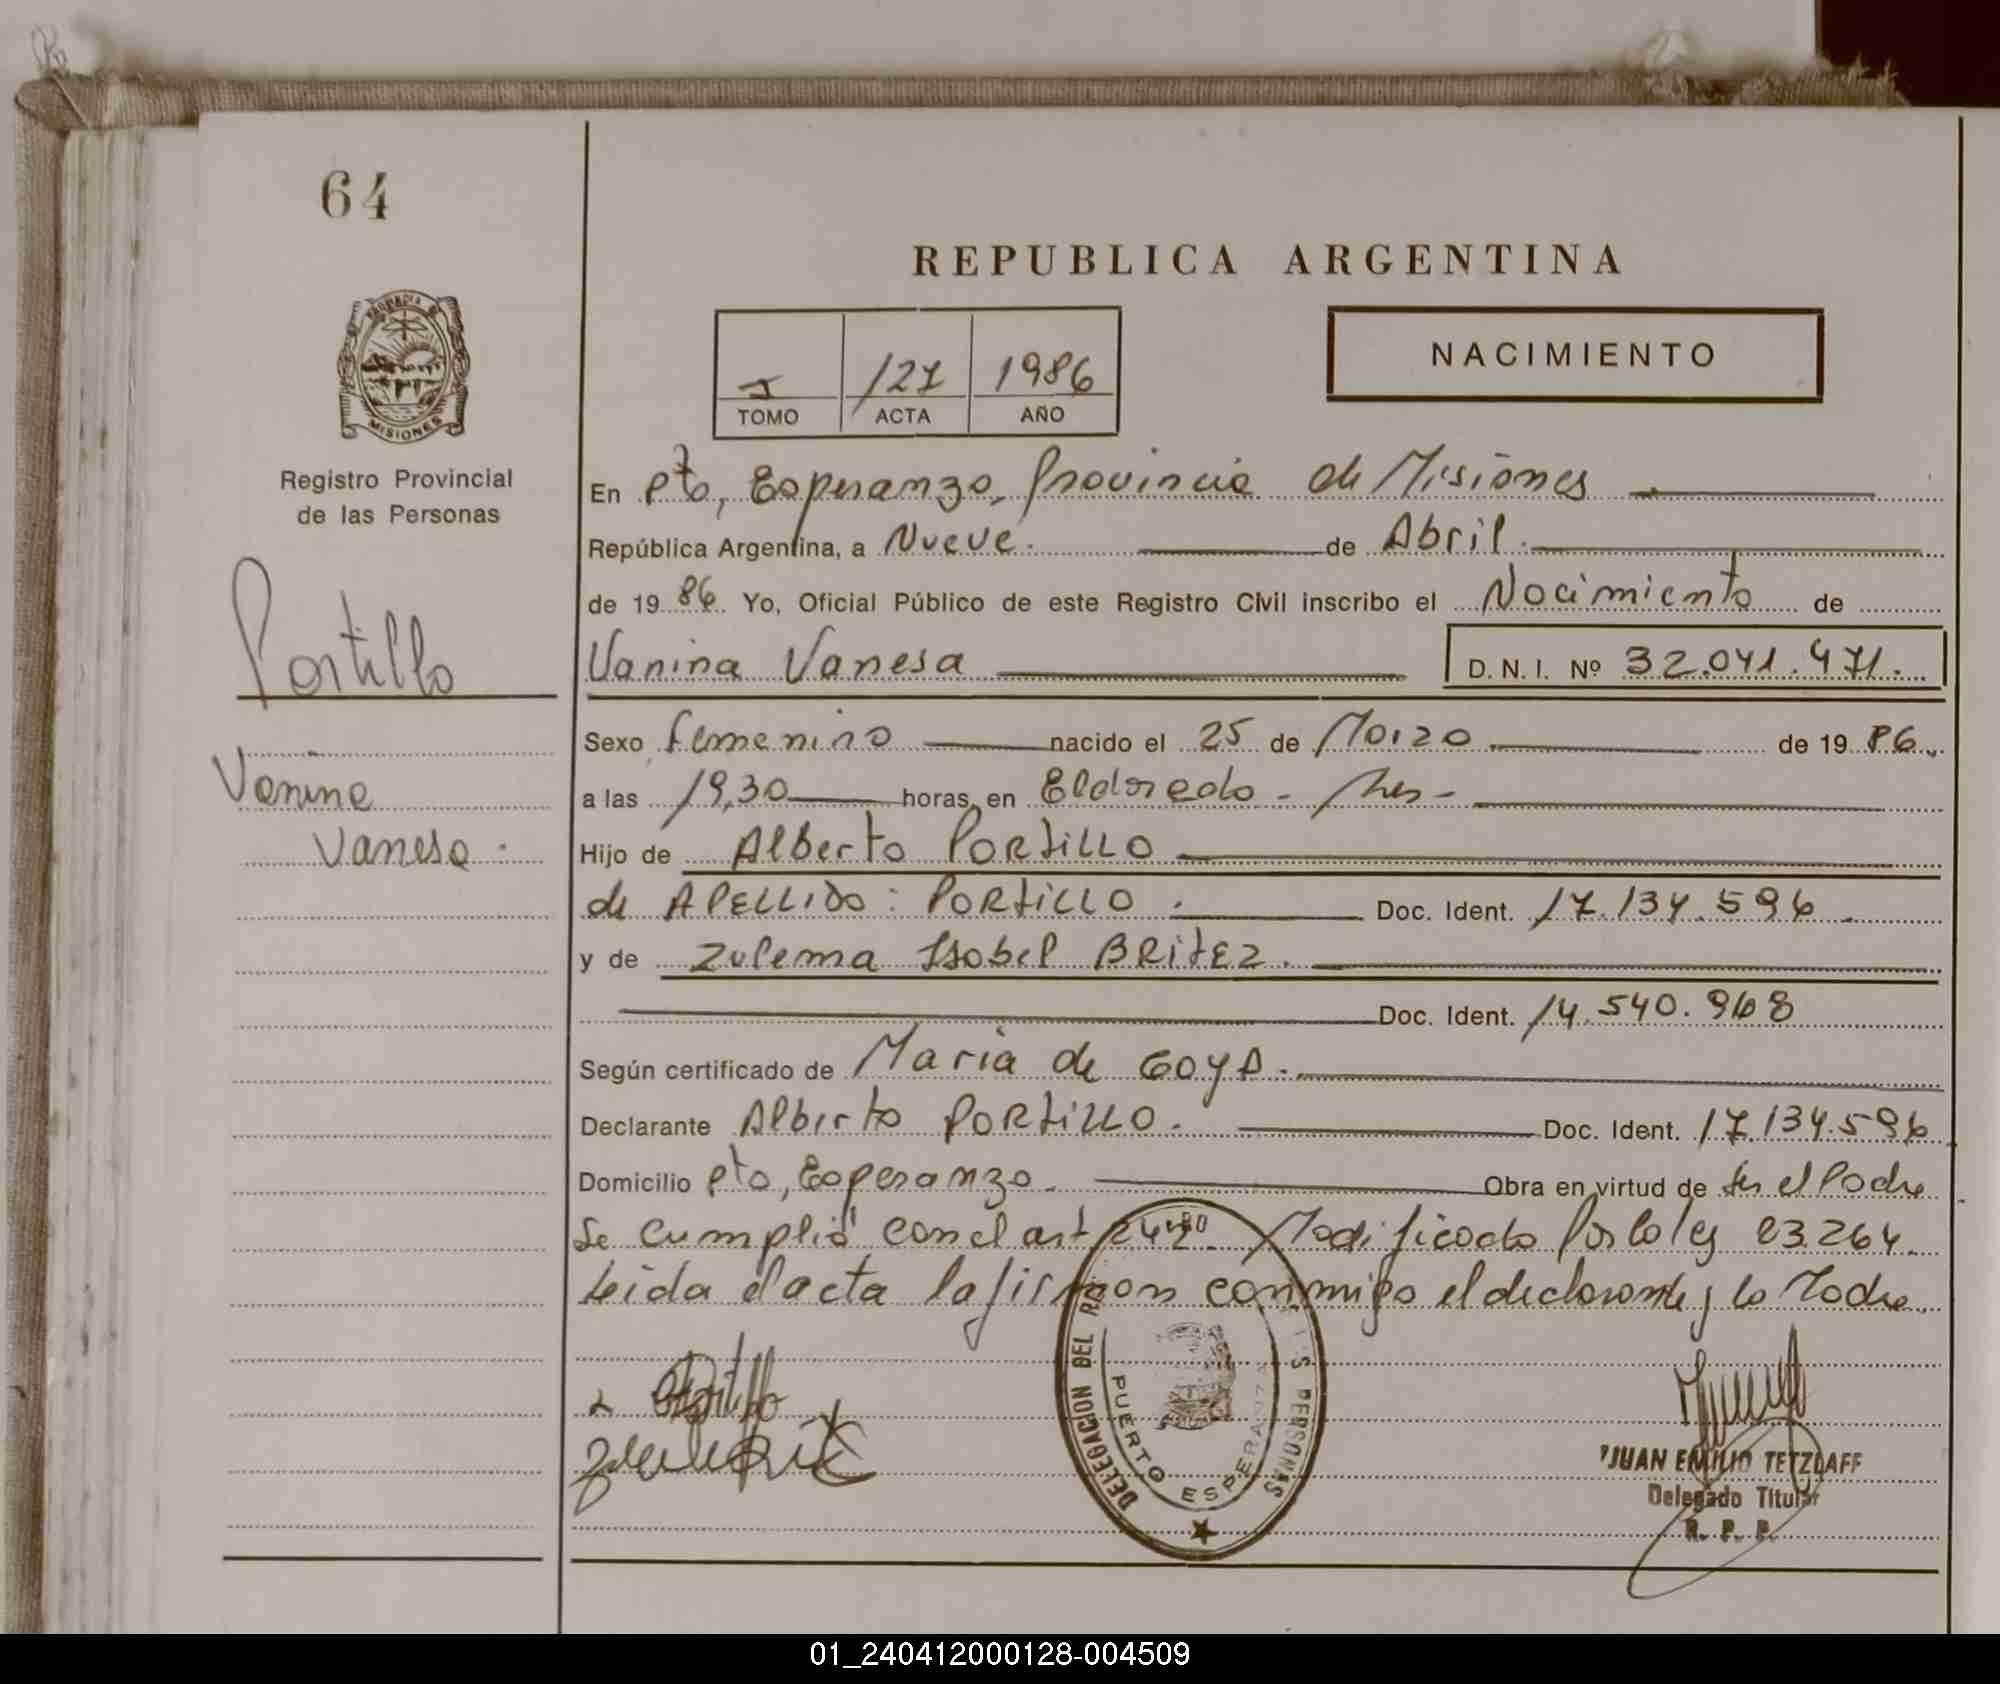 64
REPUBLICA ARGENTINA
NACIMIENTO
I 127 1986
TOMO ACTA AÑO
PROVINCIA DE
MISIONES
Registro Provincial
de las Personas
Portillo
Vanina
Vanesa.
En Pto, Esperanza, Provincia de Misiones
República Argentina, a Nueve. de Abril.
de 1986 Yo, Oficial Público de este Registro Civil inscribo el Nacimiento de
Vanina Vanesa D. N. I. Nº 32.041.471.
Sexo Femenino nacido el 25 de Marzo de 1986.
a las 19,30 horas, en Eldorado - Mes -
Hijo de Alberto PORTILLO
de APELLIDO: PORTILLO. Doc. Ident. 17.134.596.
y de Zulema Isabel BRITEZ.
Doc. Ident. 14.540.968
Según certificado de Maria de GOYA.
Declarante Alberto PORTILLO. Doc. Ident. 17.134.596
Domicilio Pto, Esperanza. Obra en virtud de ser el Padre
Se cumplió con el art 242º Modificado Por la ley 23.264.
Leida el acta la firman conmigo el declarante y la Madre.
DELEGACION DEL PERSONAS
PUERTO ESPERANZA
JUAN EMILIO TETZLAFF
Delegado Titular
R. P. P.
01_240412000128-004509